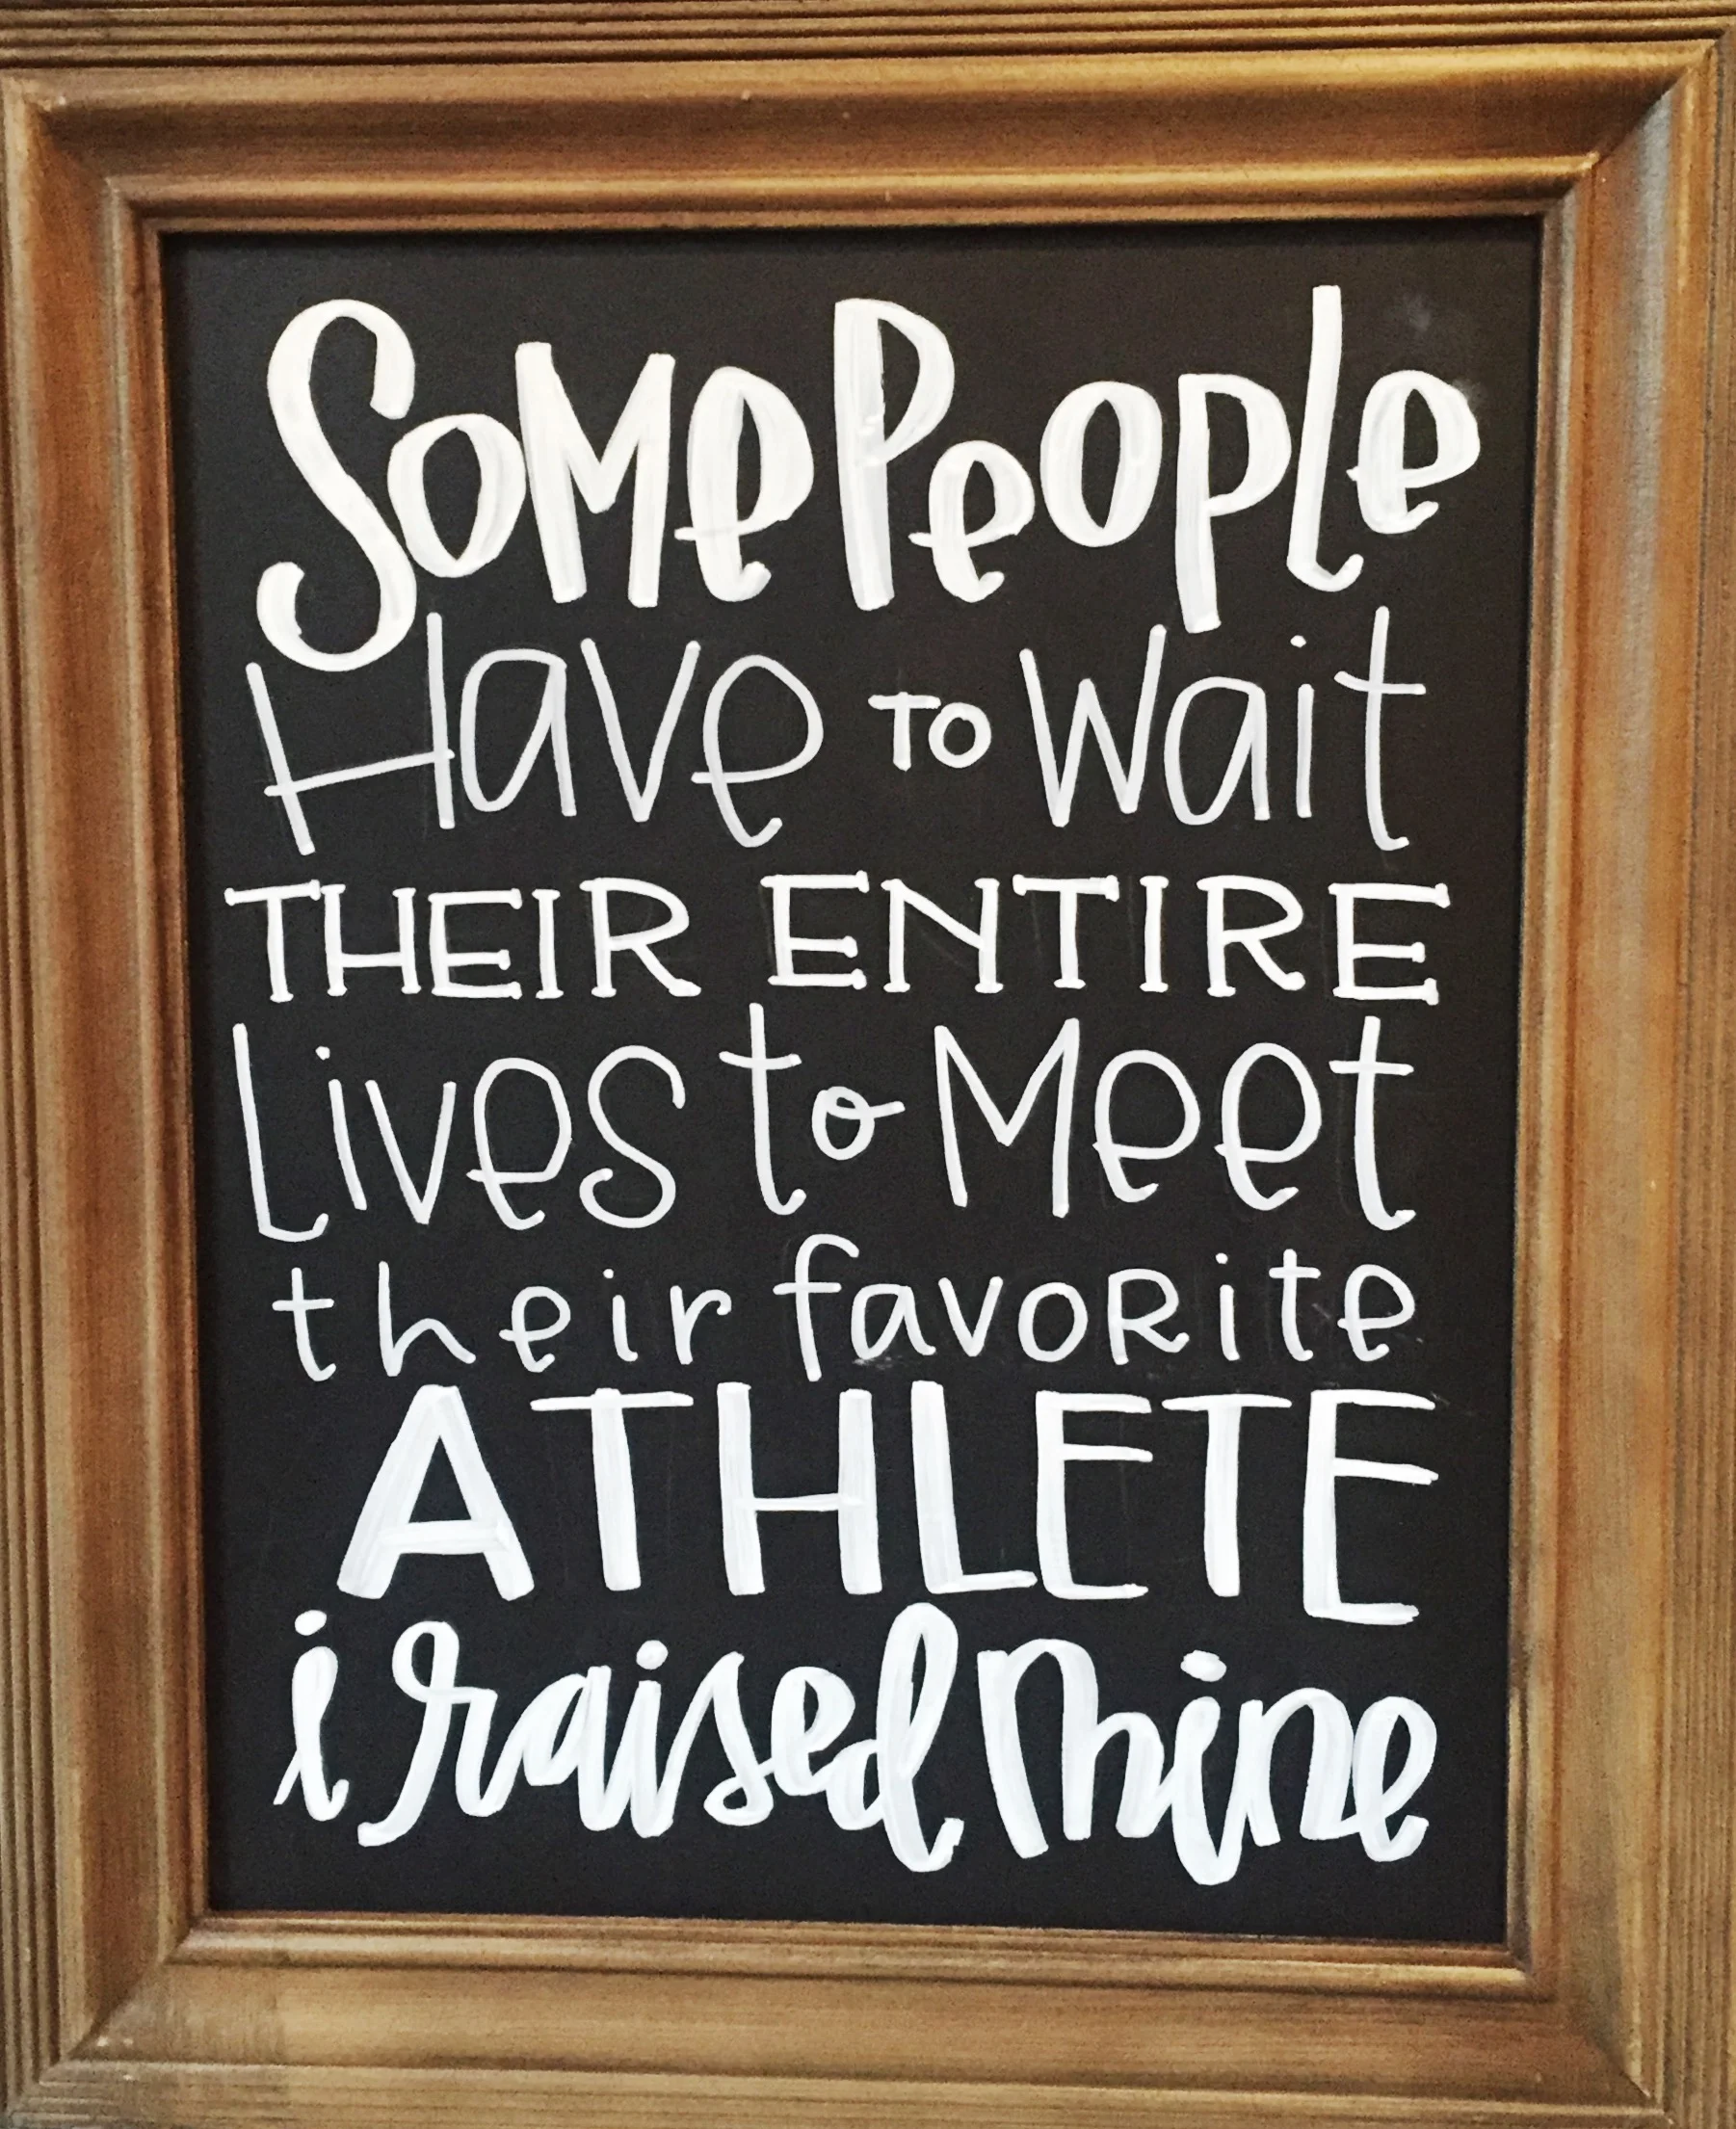 Some People
Have TO Wait
THEIR ENTIRE
Lives to Meet
their favoRite
ATHLETE
i raised Mine